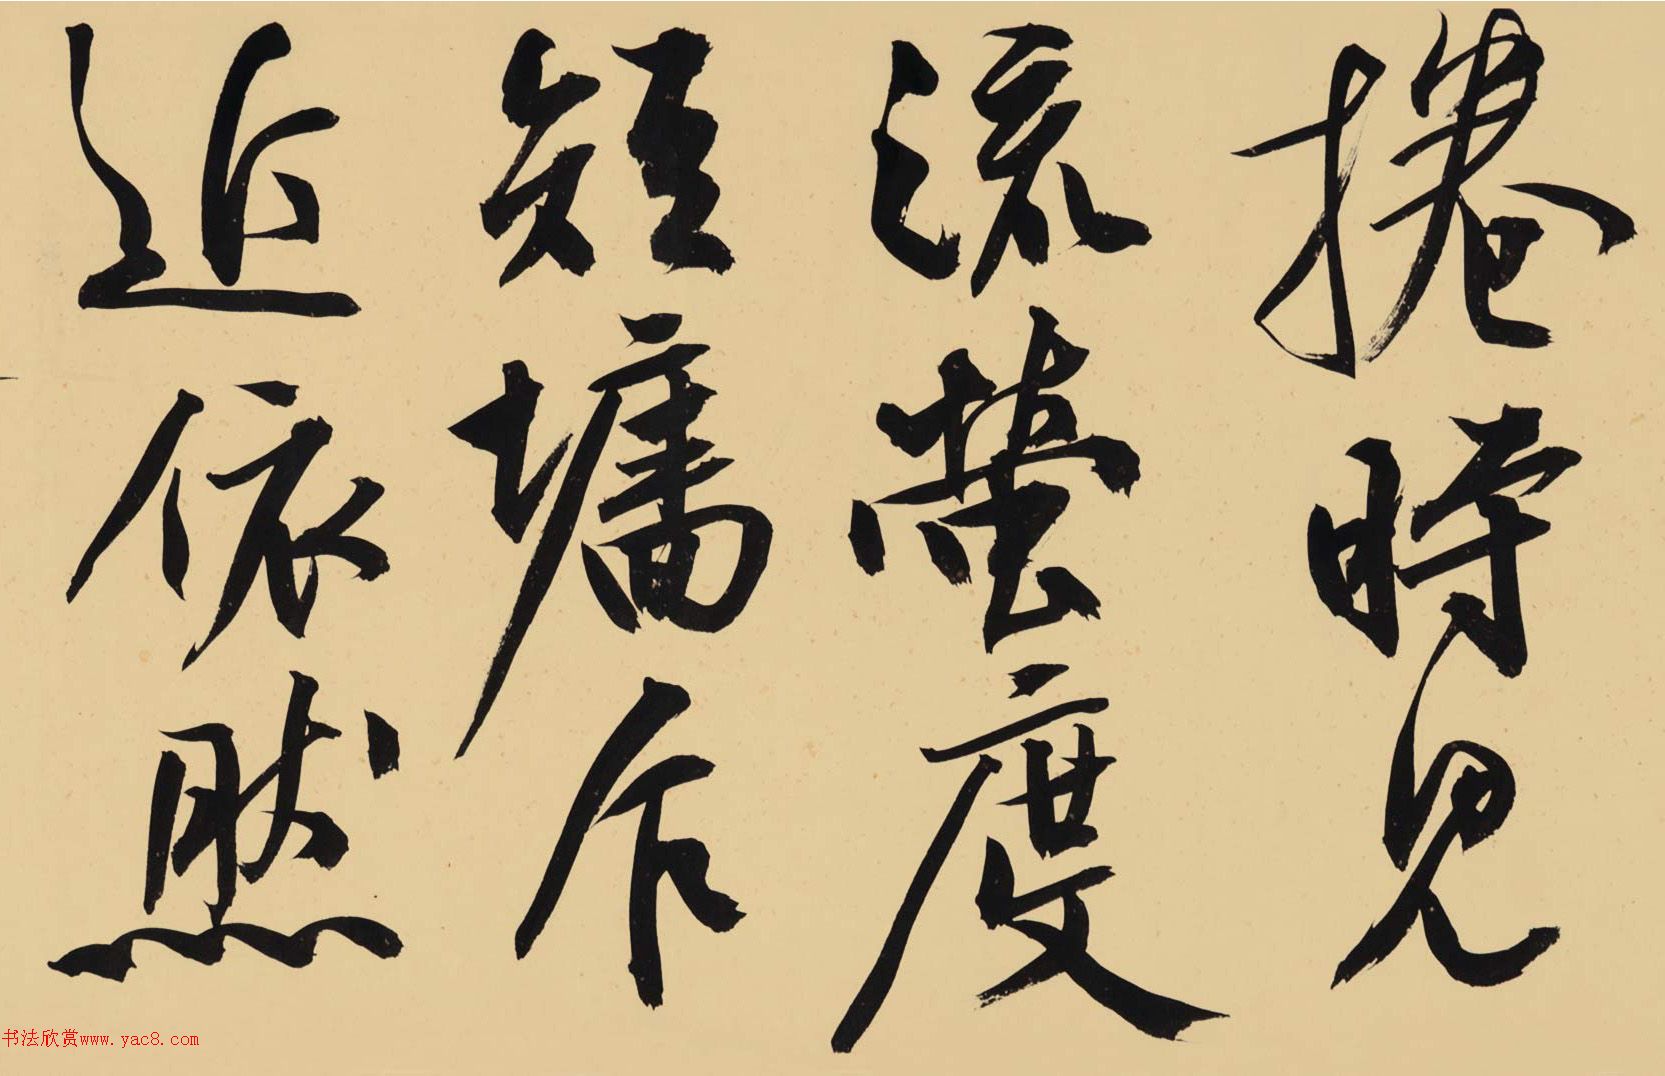 捲時見
流螢度
短墉乍
近依然
书法欣赏www.yac8.com